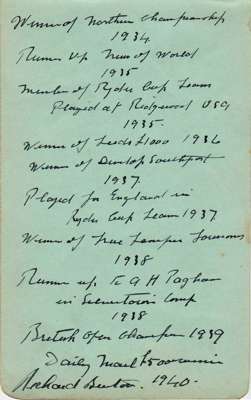 Winner of Northern Championship
1934
Runner Up News of World
1935
Member of Ryder Cup Team
Played at Ridgewood USA
1935.
Winner of Leeds £1000 1936
Winner of Dunlop Southport
1937.
Played for England in
Ryder Cup Team 1937
Winner of True Temper
1938
Runner up to A H Padgham
in Silvertown Comp
1938
British Open Champion 1939
Daily Mail
Richard Burton. 1940.